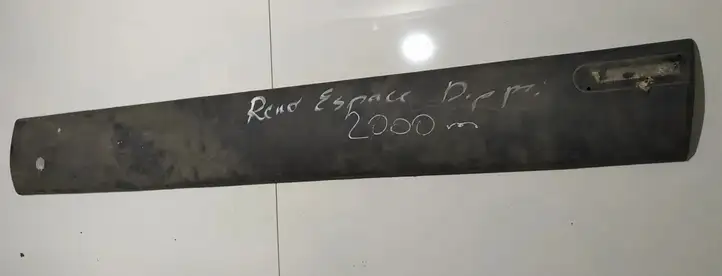 Reno Espace
2000 m